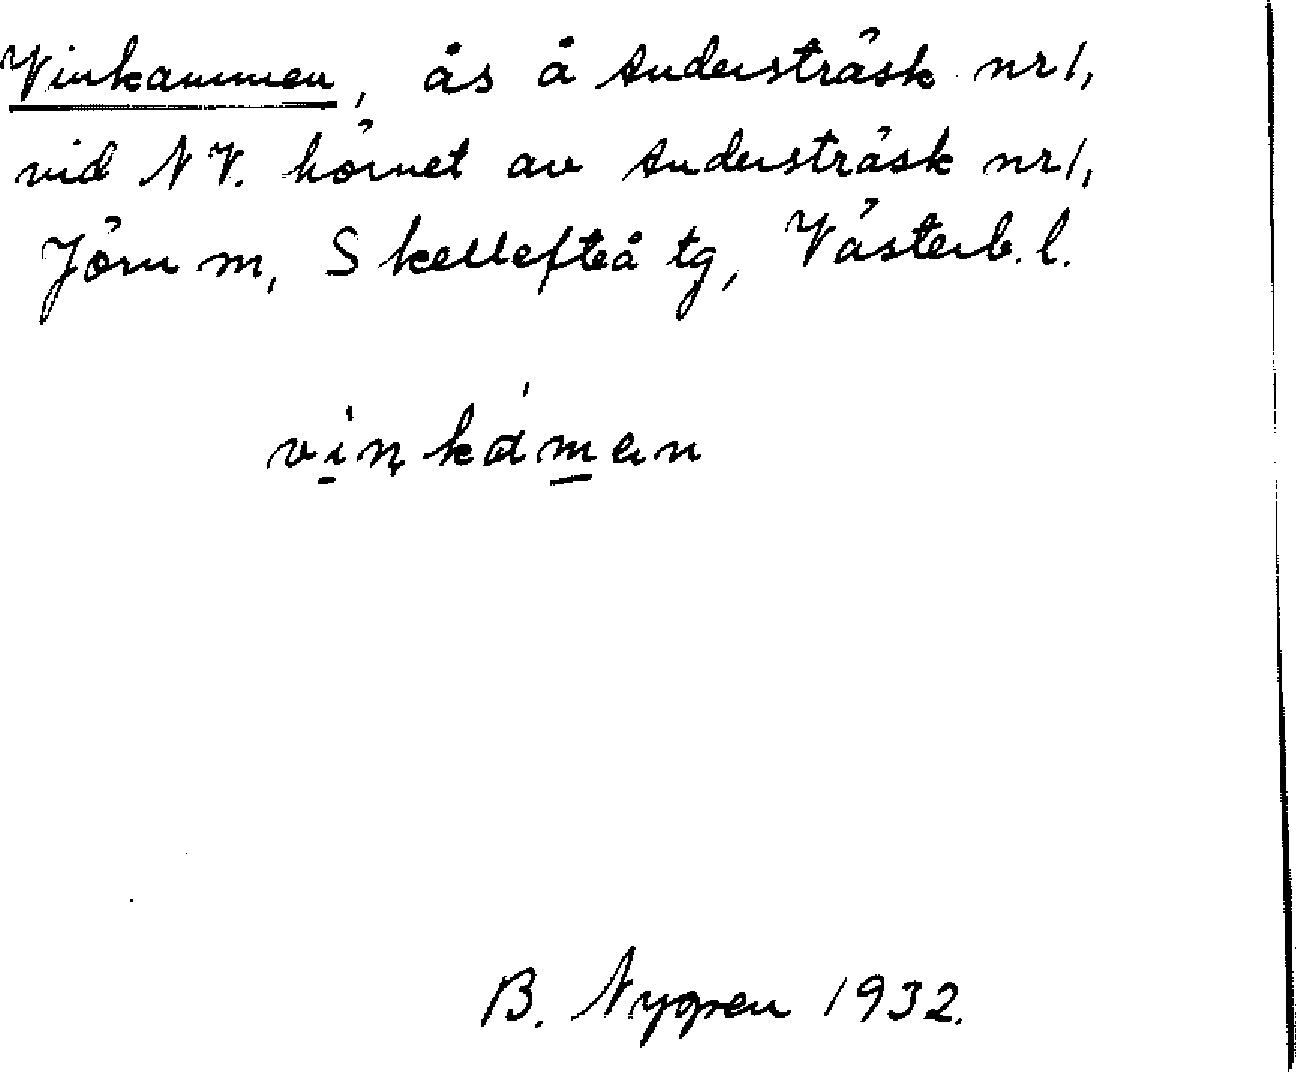 Vinkammen, ås å Andersträsk nr 1,
vid N V. hörnet av Andersträsk nr 1,
Jörn m, Skellefteå tg, Västerb. l.
vinkámen
B. Nygren 1932.